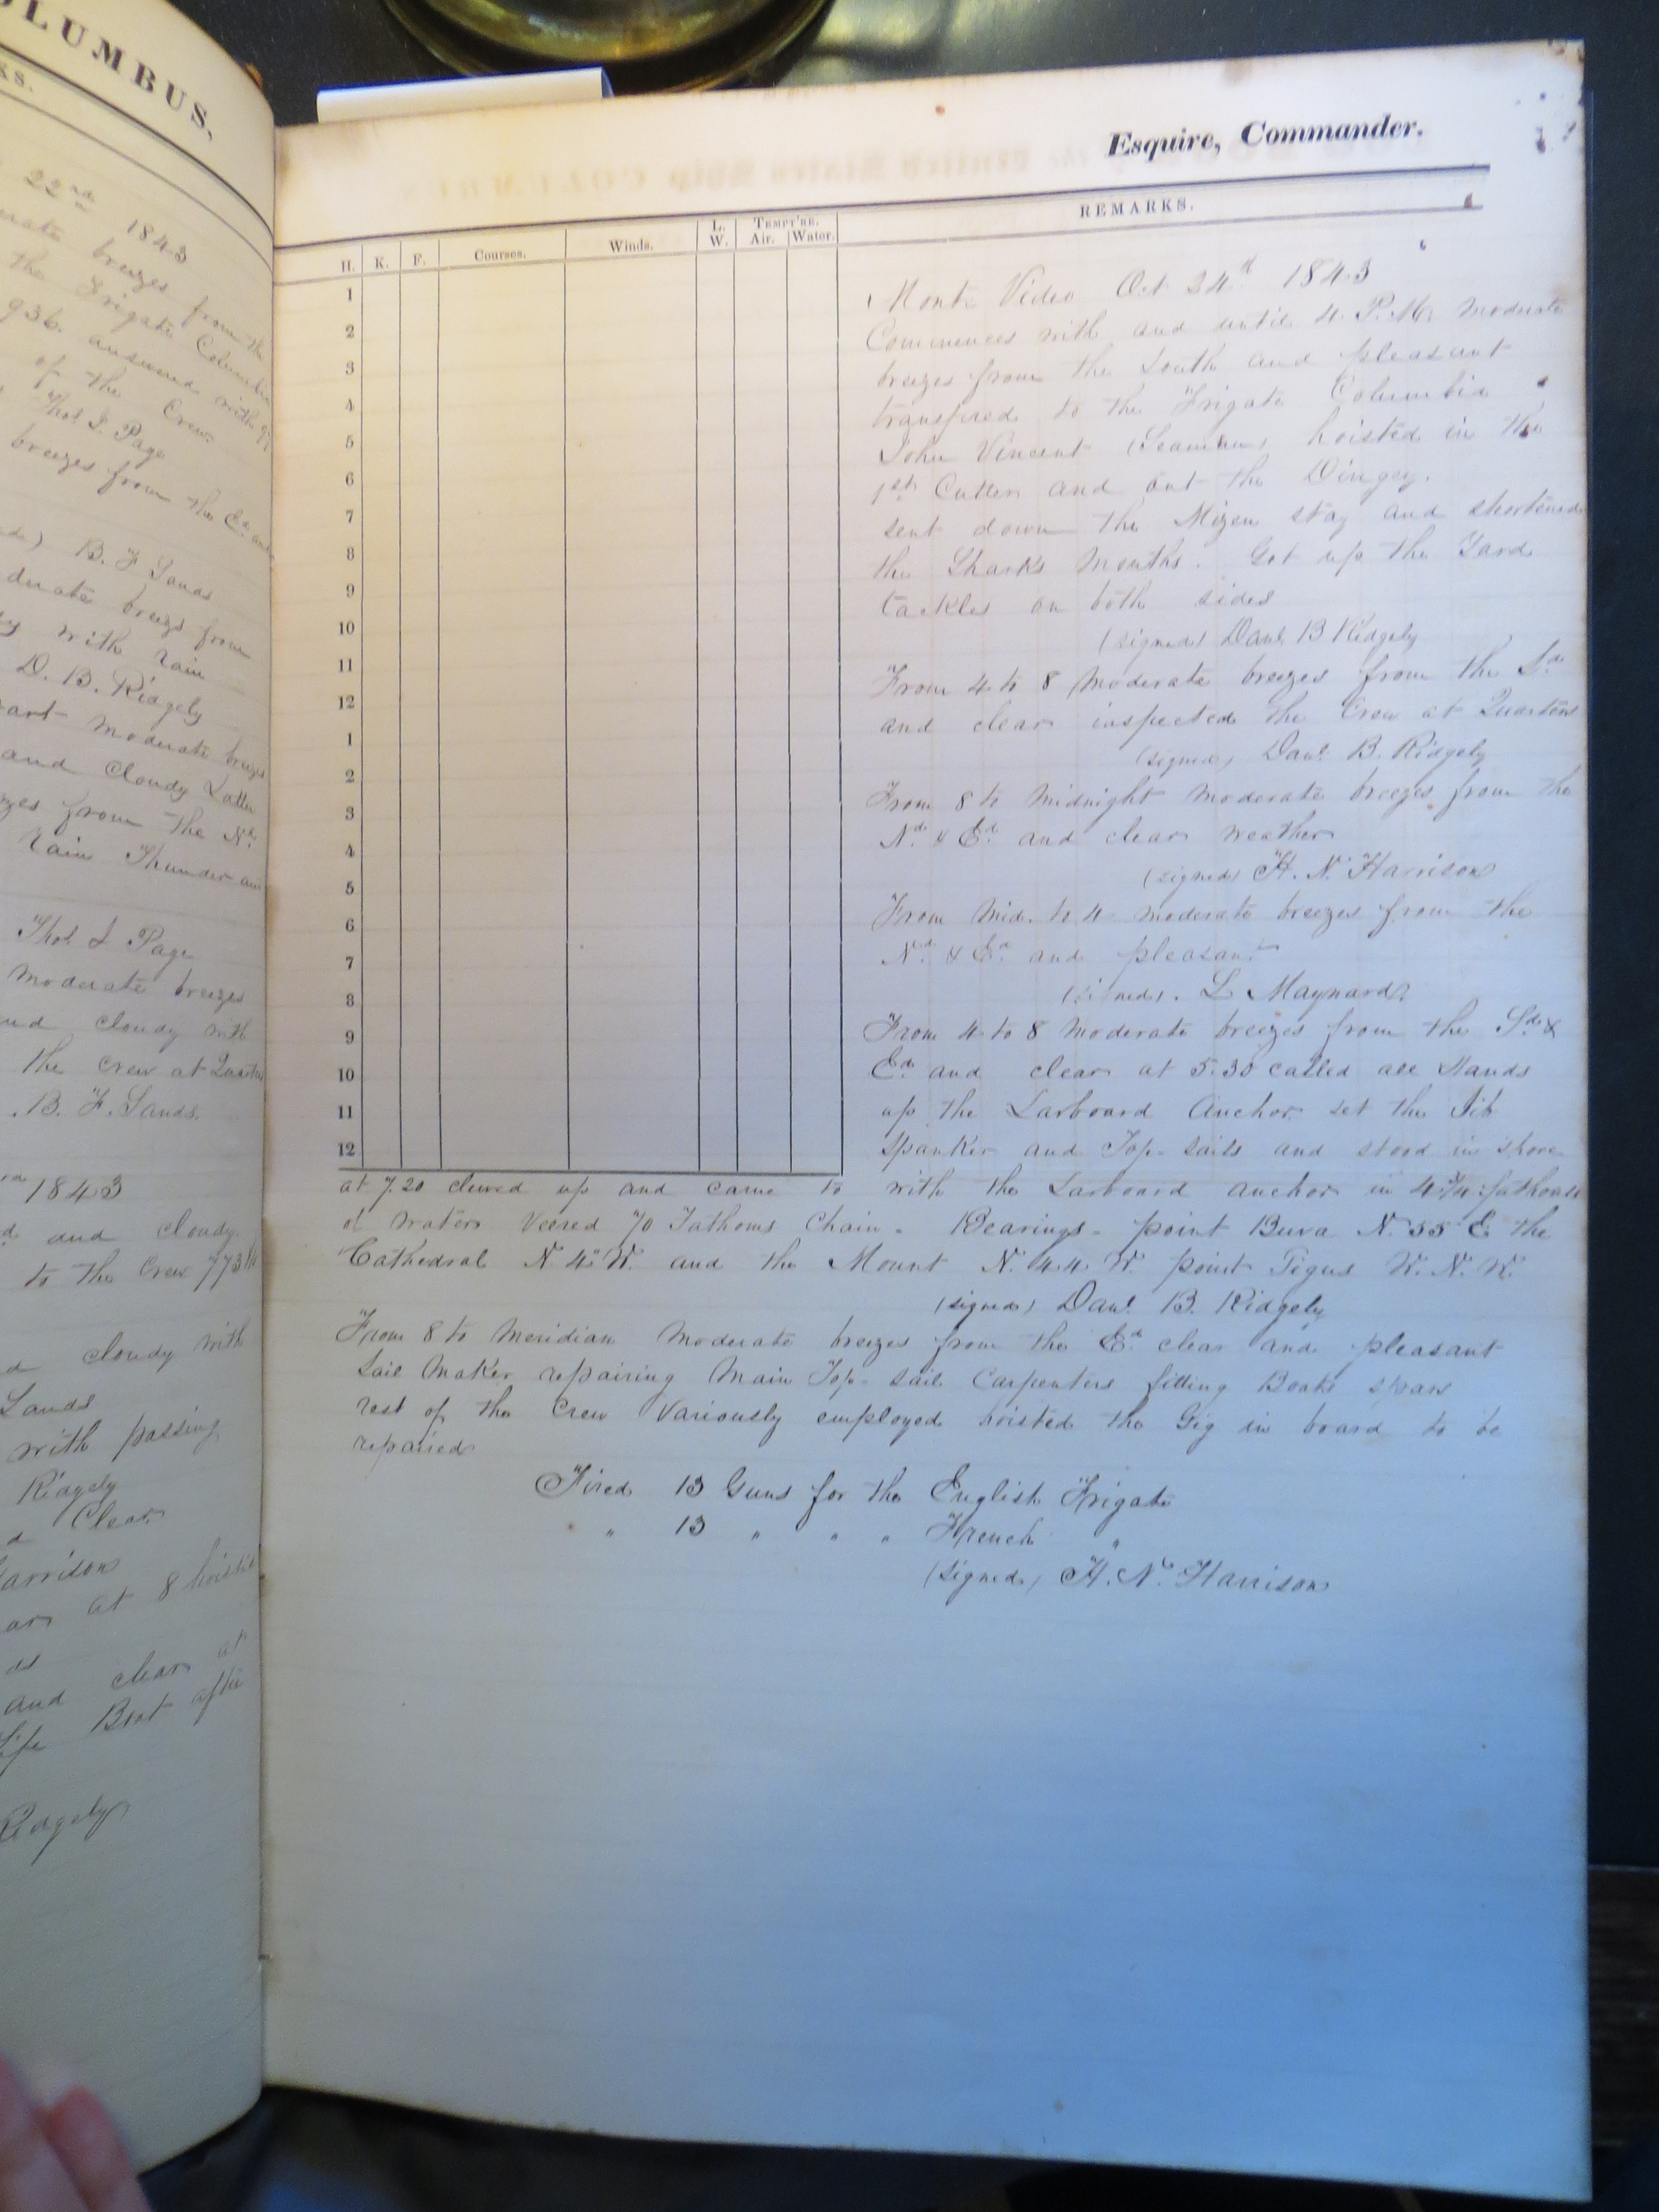 COLUMBUS,
KS.
22nd 1843
breezes from the
the Frigate Columbia
936. answered with
of the Crew.
Thos. J. Page
breezes from the Ed. and
B. F Sands
breezes from
with rain
D. B. Ridgely
part moderate breezes
and Cloudy Latter
from the Nd.
rain Thunder and
Thos. J Page
moderate breezes
and cloudy with
the crew at Quarters
B. F. Sands.
1843
and cloudy.
to the Crew 773 lb
cloudy with
Sands
with passing
Ridgely
Clear
Harrison
at 8 hoisted
and clear at
Boat after
Ridgely
Esquire, Commander.
H. K. F. Courses. Winds. L. W. TEMPT'RE. Air. Water. REMARKS.
1
2
3
4
5
6
7
8
9
10
11
12
1
2
3
4
5
6
7
8
9
10
11
12
Monte Video Oct 24th 1843
Commences with and until 4 P.M. moderate
breezes from the South and pleasant
transfired to the Frigate Columbia
John Vincent (Seaman) hoisted in the
1st Cutter and out the Dingey.
sent down the Mizen stay and shortened
the Sharks Mouths. Got up the Yard
tackles on both sides
(signed) Danl. B Ridgely
From 4 to 8 moderate breezes from the Sd.
and clear inspected the Crew at Quarters
(signed) Danl. B. Ridgely
From 8 to Midnight moderate breezes from the
Nd. & Ed. and clear weather
(signed) H. N. Harrison
From Mid. to 4 moderate breezes from the
Nd. & Ed. and pleasant
(signed). L Maynard
From 4 to 8 moderate breezes from the Sd. &
Ed. and clear at 5.30 called all Hands
up the Larboard Anchor set the Jib
Spanker and Top-sails and stood in shore
at 7.20 clewed up and came to with the Larboard anchor in 4 3/4 fathoms
of water Veered 70 Fathoms Chain - Bearings - point Buva N. 55 E the
Cathedral N. 4° W. and the Mount N. 44 W. point Tigus W. N. W.
(signed) Danl. B. Ridgely
From 8 to Meridian Moderate breezes from the Ed. clear and pleasant
Sail Maker repairing Main Top-sail Carpenters fitting Boats spars
rest of the Crew Variously employed hoisted the Gig in board to be
repaired
Fired 13 Guns for the English Frigate
" 13 " " " French "
(signed) H. N. Harrison